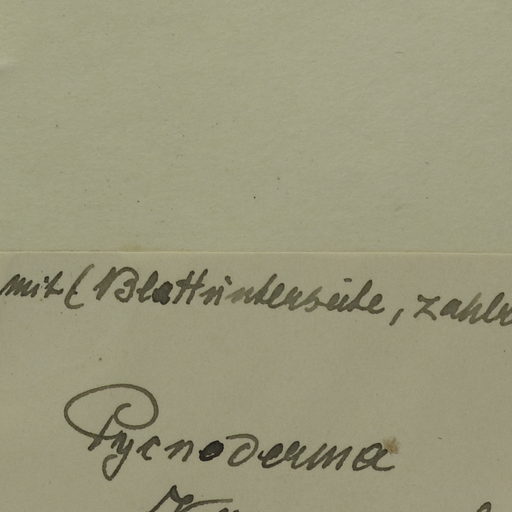 mit (Blattunterseite, zahlr
Pycnoderma